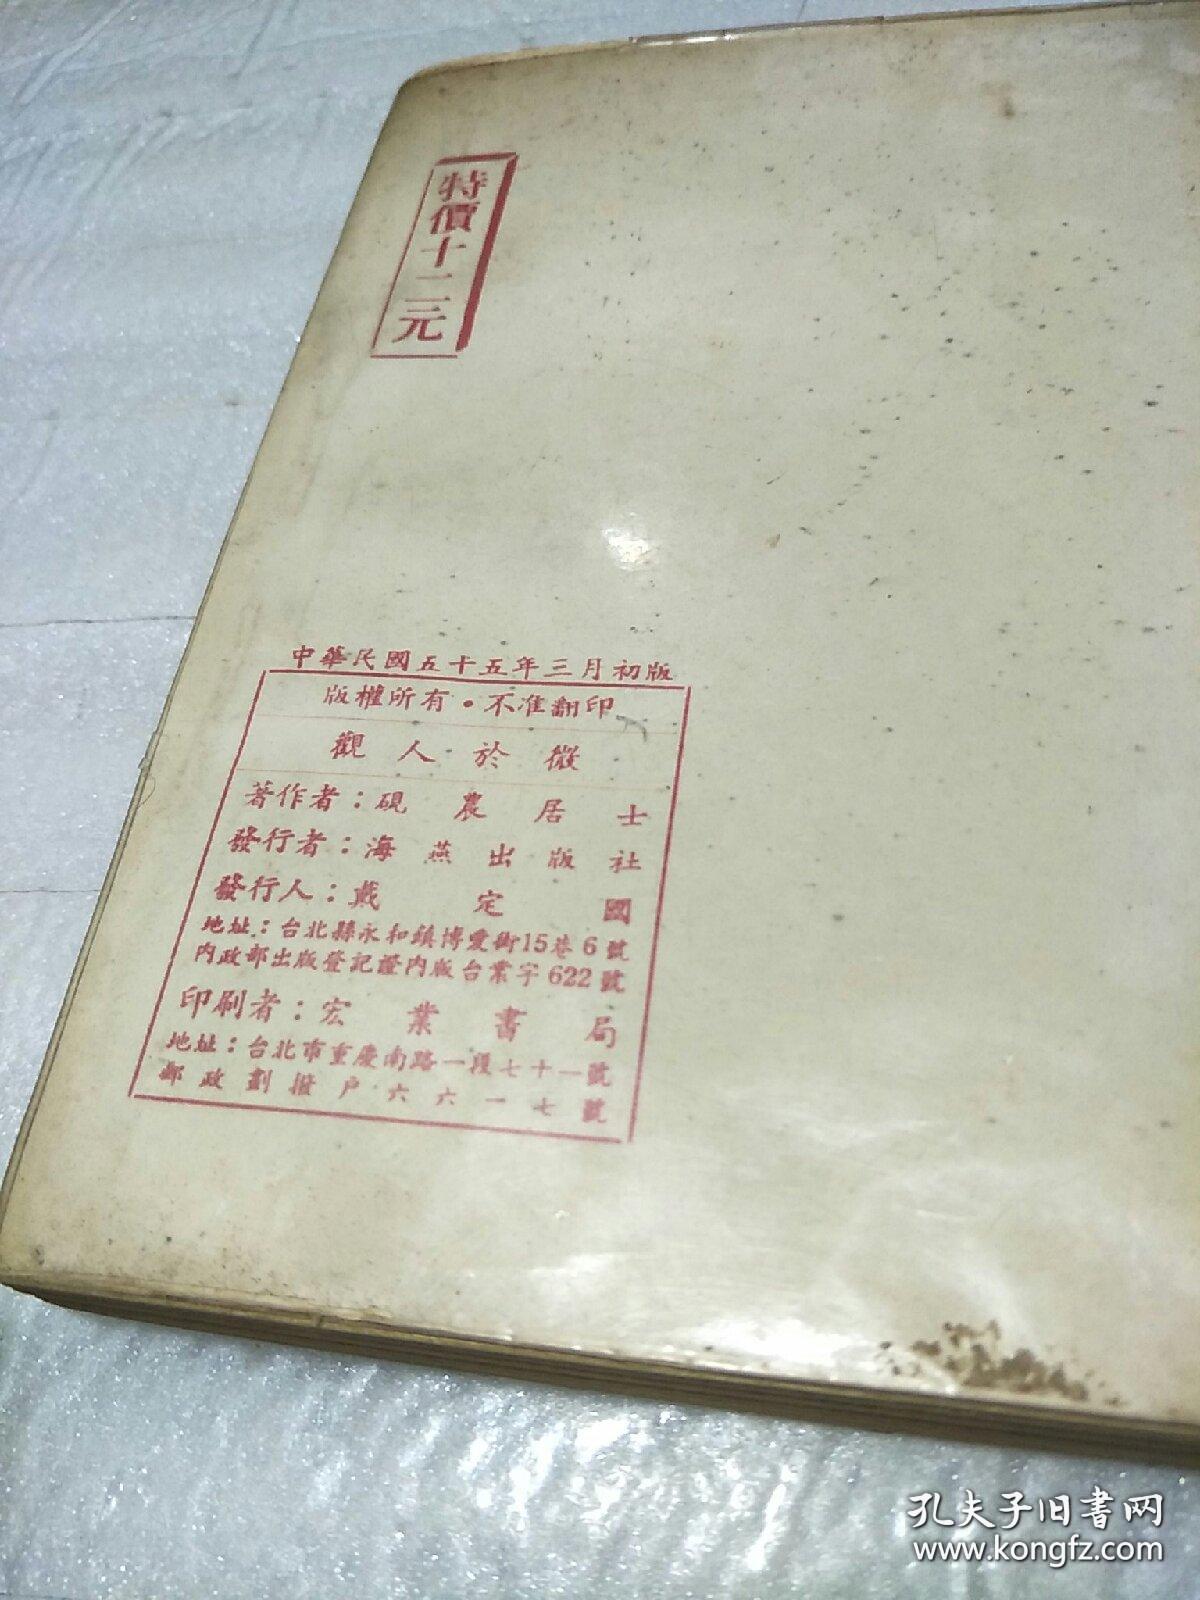 特價十二元
中華民國五十五年三月初版
版權所有・不准翻印
觀人於微
著作者：硯農居士
發行者：海燕出版社
發行人：戴定國
地址：台北縣永和鎮博愛街15巷6號
內政部出版登記證內版台業字622號
印刷者：宏業書局
地址：台北市重慶南路一段七十一號
郵政劃撥戶六六一七號
孔夫子旧书网
www.kongfz.com